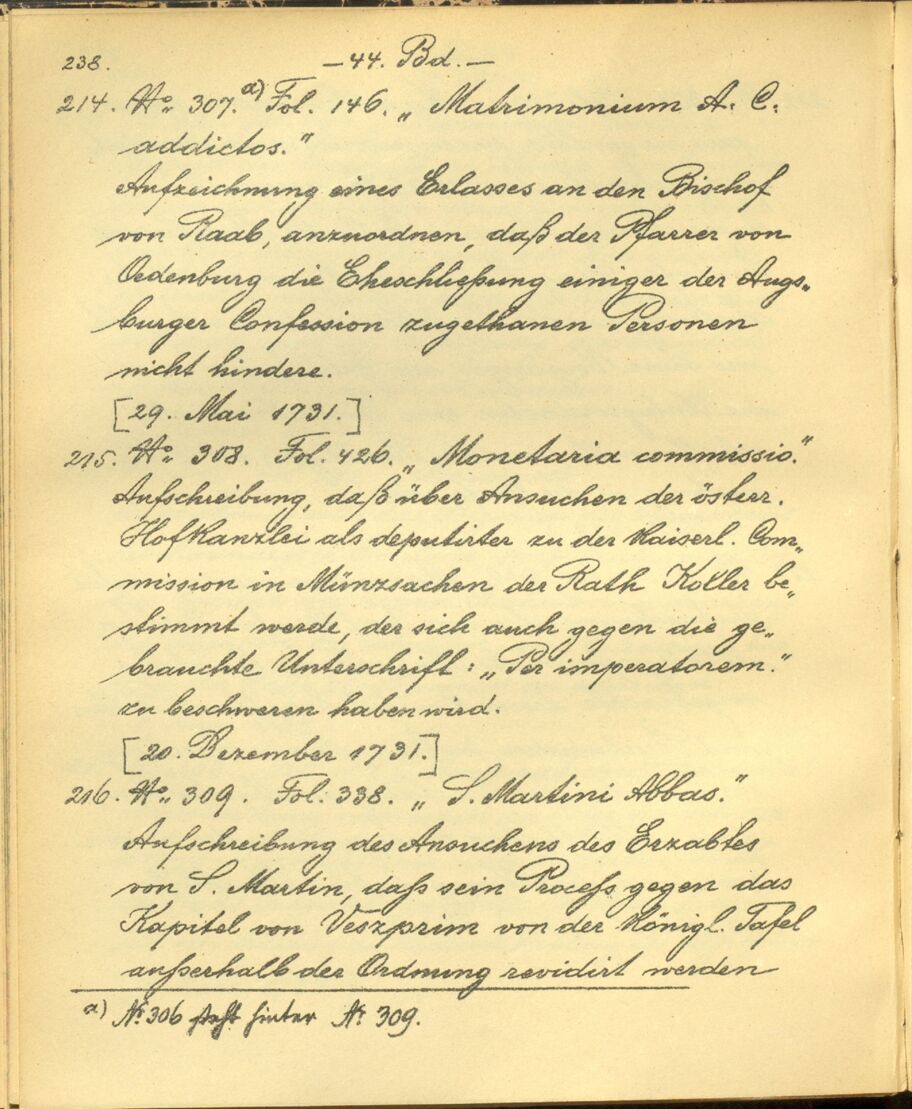 238. — 44. Bd. —
214. No. 307. a) Fol. 146. „Matrimonium A. C.
addictos."
Aufzeichnung eines Erlasses an den Bischof
von Raab, anzuordnen, daß der Pfarrer von
Oedenburg die Eheschließung einiger der Augs„
burger Confession zugethanen Personen
nicht hindere.
[29. Mai 1731.]
215. No. 308. Fol. 426. „Monetaria commissio."
Aufschreibung, daß über Ansuchen der österr.
Hofkanzlei als deputirter zu der Kaiserl. Com„
mission in Münzsachen der Rath Koller be„
stimmt werde, der sich auch gegen die ge„
brauchte Unterschrift: „Per imperatorem."
zu beschweren haben wird.
[20. Dezember 1731.]
216. No. 309. Fol. 338. „S. Martini Abbas."
Aufschreibung des Ansuchens des Erzabtes
von S. Martin, dass sein Process gegen das
Kapitel von Veszprim von der Königl. Tafel
ausserhalb der Ordnung revidirt werden
a) No. 306 steht hinter No. 309.